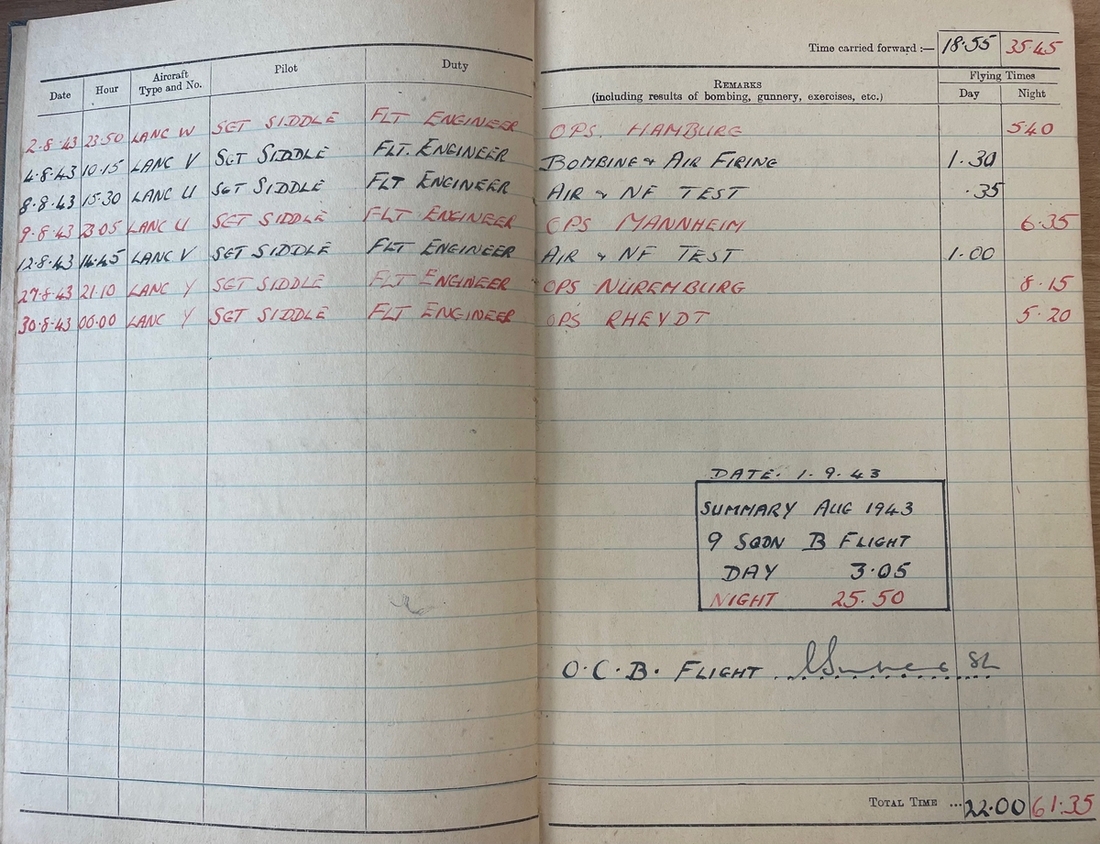 Time carried forward :— 18.55 35.45
Date Hour Aircraft Type and No. Pilot Duty REMARKS (including results of bombing, gunnery, exercises, etc.) Flying Times Day Night
2.8.43 23.50 LANC W SGT SIDDLE FLT ENGINEER OPS. HAMBURG 5.40
4.8.43 10.15 LANC V SGT SIDDLE FLT. ENGINEER BOMBING & AIR FIRING 1.30
8.8.43 15.30 LANC U SGT SIDDLE FLT ENGINEER AIR & NF TEST .35
9.8.43 23.05 LANC U SGT SIDDLE FLT ENGINEER OPS MANNHEIM 6.35
12.8.43 14.45 LANC V SGT SIDDLE FLT ENGINEER AIR & NF TEST 1.00
27.8.43 21.10 LANC Y SGT SIDDLE FLT ENGINEER OPS NUREMBURG 8.15
30.8.43 00.00 LANC Y SGT SIDDLE FLT ENGINEER OPS RHEYDT 5.20
DATE. 1.9.43
SUMMARY AUG 1943
9 SQDN B FLIGHT
DAY 3.05
NIGHT 25.50
O.C.B. FLIGHT
TOTAL TIME ... 22.00 61.35